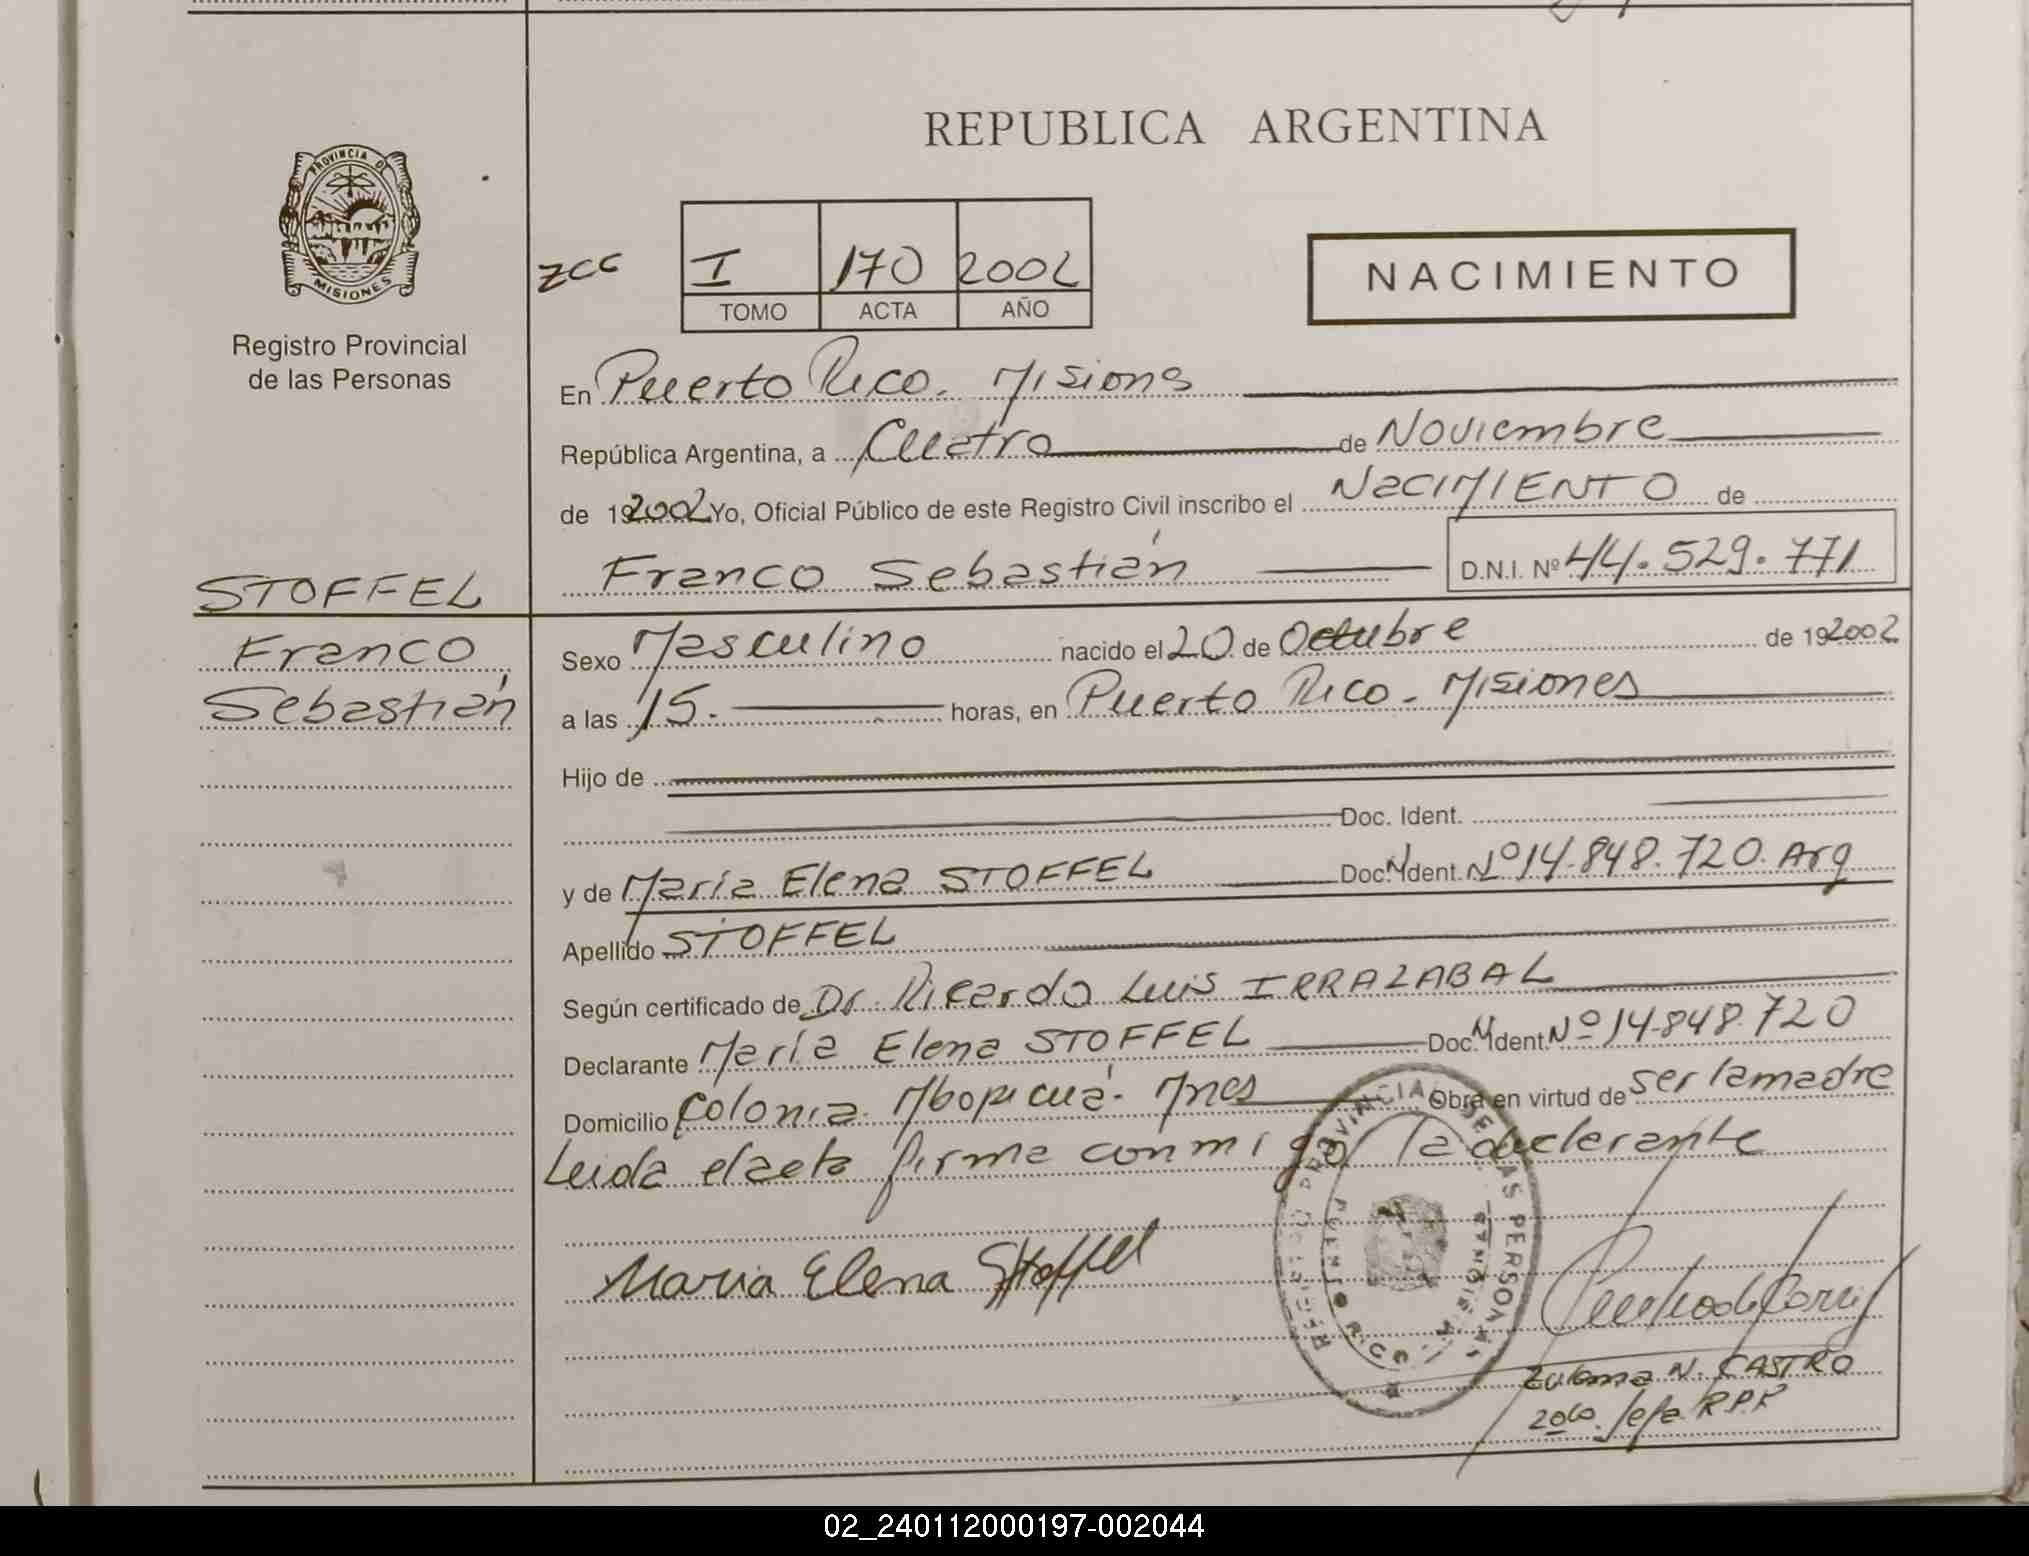 REPUBLICA ARGENTINA
PROVINCIA DE
MISIONES
Registro Provincial
de las Personas
zcc
I 170 2002
TOMO ACTA AÑO
NACIMIENTO
En Puerto Rico. Misions
República Argentina, a Cuatro de Noviembre
de 192002 Yo, Oficial Público de este Registro Civil inscribo el NaCIMIENTO de
Franco Sebastián D.N.I. Nº 44.529.771
STOFFEL
Franco
Sebastián
Sexo Masculino nacido el 20 de Octubre de 192002
a las 15. horas, en Puerto Rico. Misiones
Hijo de
Doc. Ident.
y de María Elena STOFFEL Doc. Ident. Nº 14.848.720. Arg
Apellido STOFFEL
Según certificado de Dr. Ricardo Luis IRRAZABAL
Declarante María Elena STOFFEL Doc. Ident. Nº 14.848.720
Domicilio Colonia Mbopicuá. Mnes Obra en virtud de ser la madre
Leida el acta firma conmigo la declarante
Maria Elena Stoffel
REGISTRO PROVINCIAL DE LAS PERSONAS
PUERTO RICO
MISIONES
Zulema N. CASTRO
Jefa R.P.P
02_240112000197-002044